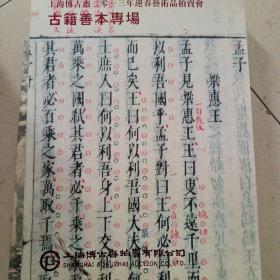 上海博古齋二零一三年迎春藝術品拍賣會
古籍善本專場
孟子
梁惠王
孟子見梁惠王王曰叟不遠千里而
以利吾國乎孟子對曰王何必曰利
而已矣王曰何以利吾國大夫曰何
士庶人曰何以利吾身上下交征
萬乘之國弑其君者必千乘之家
其君者必百乘之家萬取千焉
上海博古齋拍賣有限公司
SHANGHAI BOGUZHAI AUCTION CO.,LTD